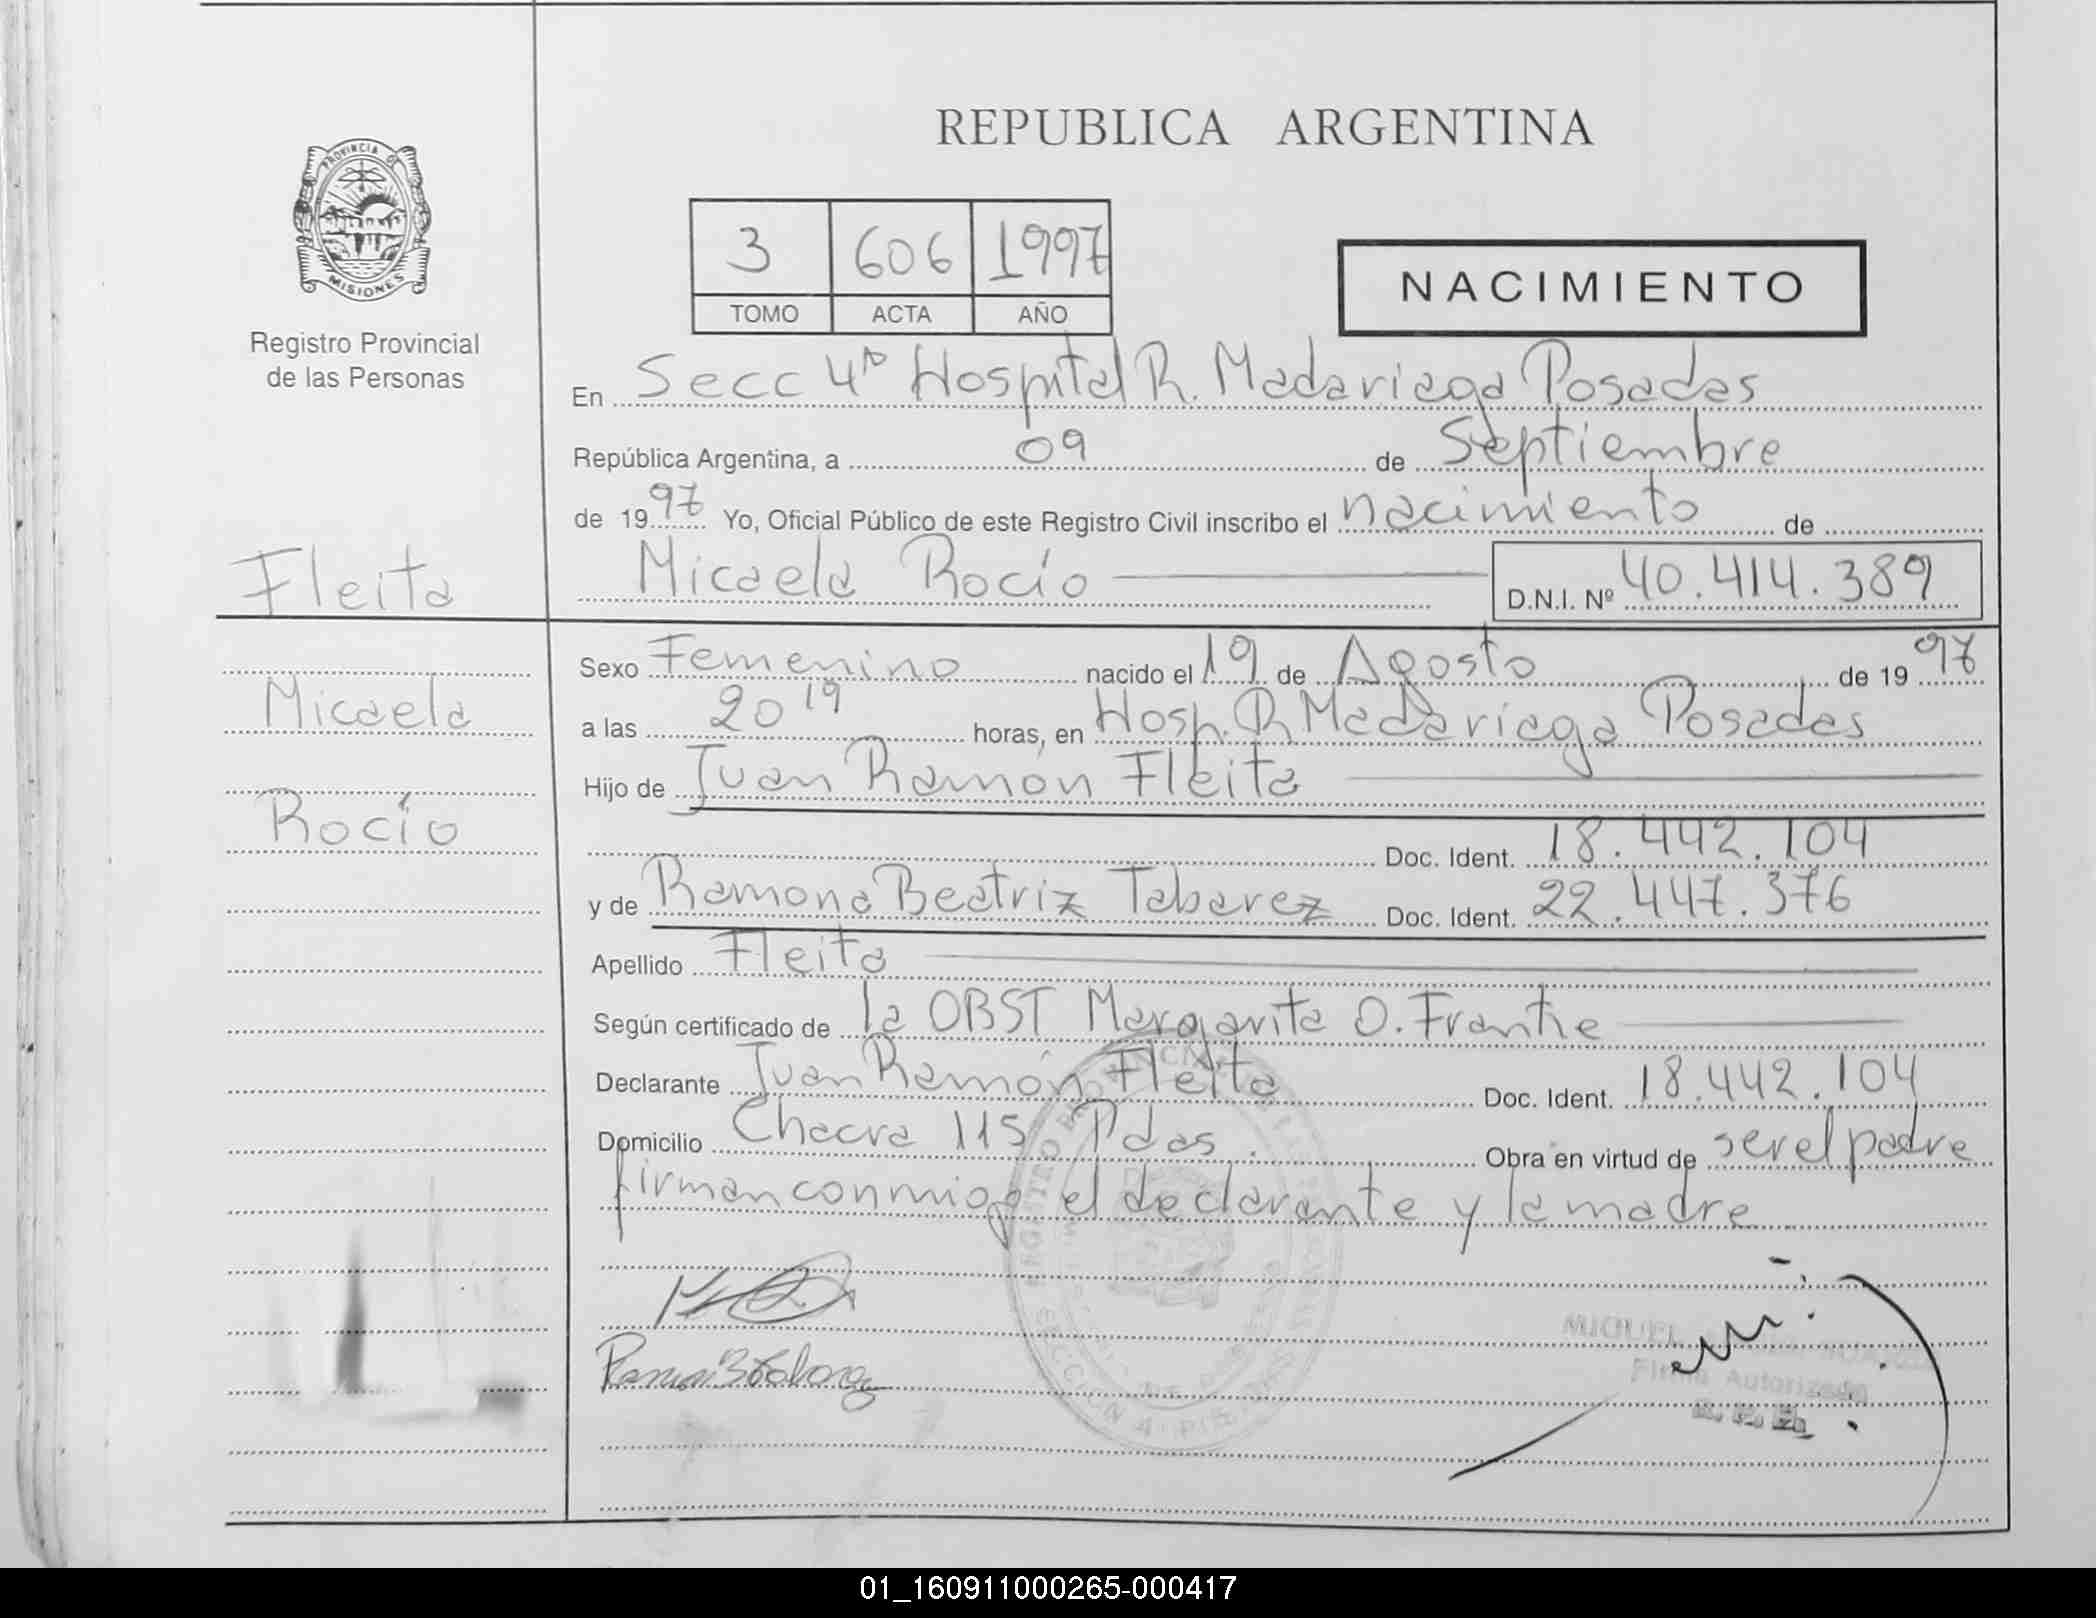 REPUBLICA ARGENTINA
PROVINCIA DE
MISIONES
Registro Provincial
de las Personas
3 606 1997
TOMO ACTA AÑO
NACIMIENTO
En Secc 4ª Hospital R. Madariaga Posadas
República Argentina, a 09 de Septiembre
de 1997 Yo, Oficial Público de este Registro Civil inscribo el nacimiento de
Fleita
Micaela Rocío D.N.I. Nº 40.414.389
Sexo Femenino nacido el 19 de Agosto de 1997
Micaela
a las 20 19 horas, en Hosp. R Madariaga Posadas
Hijo de Juan Ramón Fleita
Rocío
Doc. Ident. 18.442.104
y de Ramona Beatriz Tabarez Doc. Ident. 22.447.376
Apellido Fleita
Según certificado de la OBST Margarita O. Franke
Declarante Juan Ramón Fleita Doc. Ident. 18.442.104
Domicilio Chacra 115 Pdas. Obra en virtud de ser el padre
firman conmigo el declarante y la madre
MIGUEL
Firma Autorizada
01_160911000265-000417